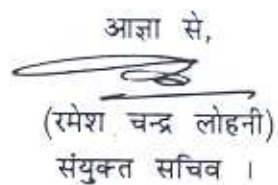 आज्ञा से,
(रमेश चन्द्र लोहनी)
संयुक्त सचिव ।